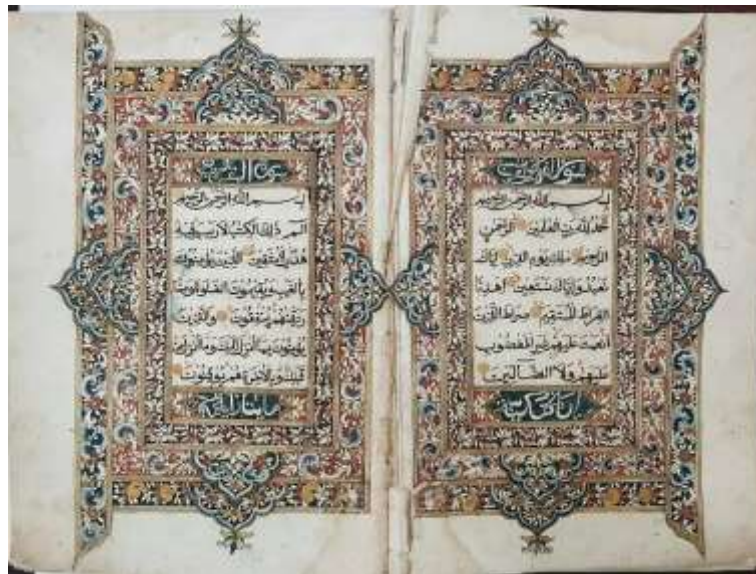 بسم الله الرحمن الرحيم
الحمد لله رب العلمين الرحمن
الرحيم ملك يوم الدين إياك
نعبد وإياك نستعين اهدنا
الصراط المستقيم صراط الذين
أنعمت عليهم غير المغضوب
عليهم ولا الضالين
بسم الله الرحمن الرحيم
الم ذلك الكتب لا ريب فيه
هدى للمتقين الذين يؤمنون
بالغيب ويقيمون الصلوة ومما
رزقنهم ينفقون والذين
يؤمنون بما أنزل إليك وما أنزل من
قبلك وبالآخرة هم يوقنون